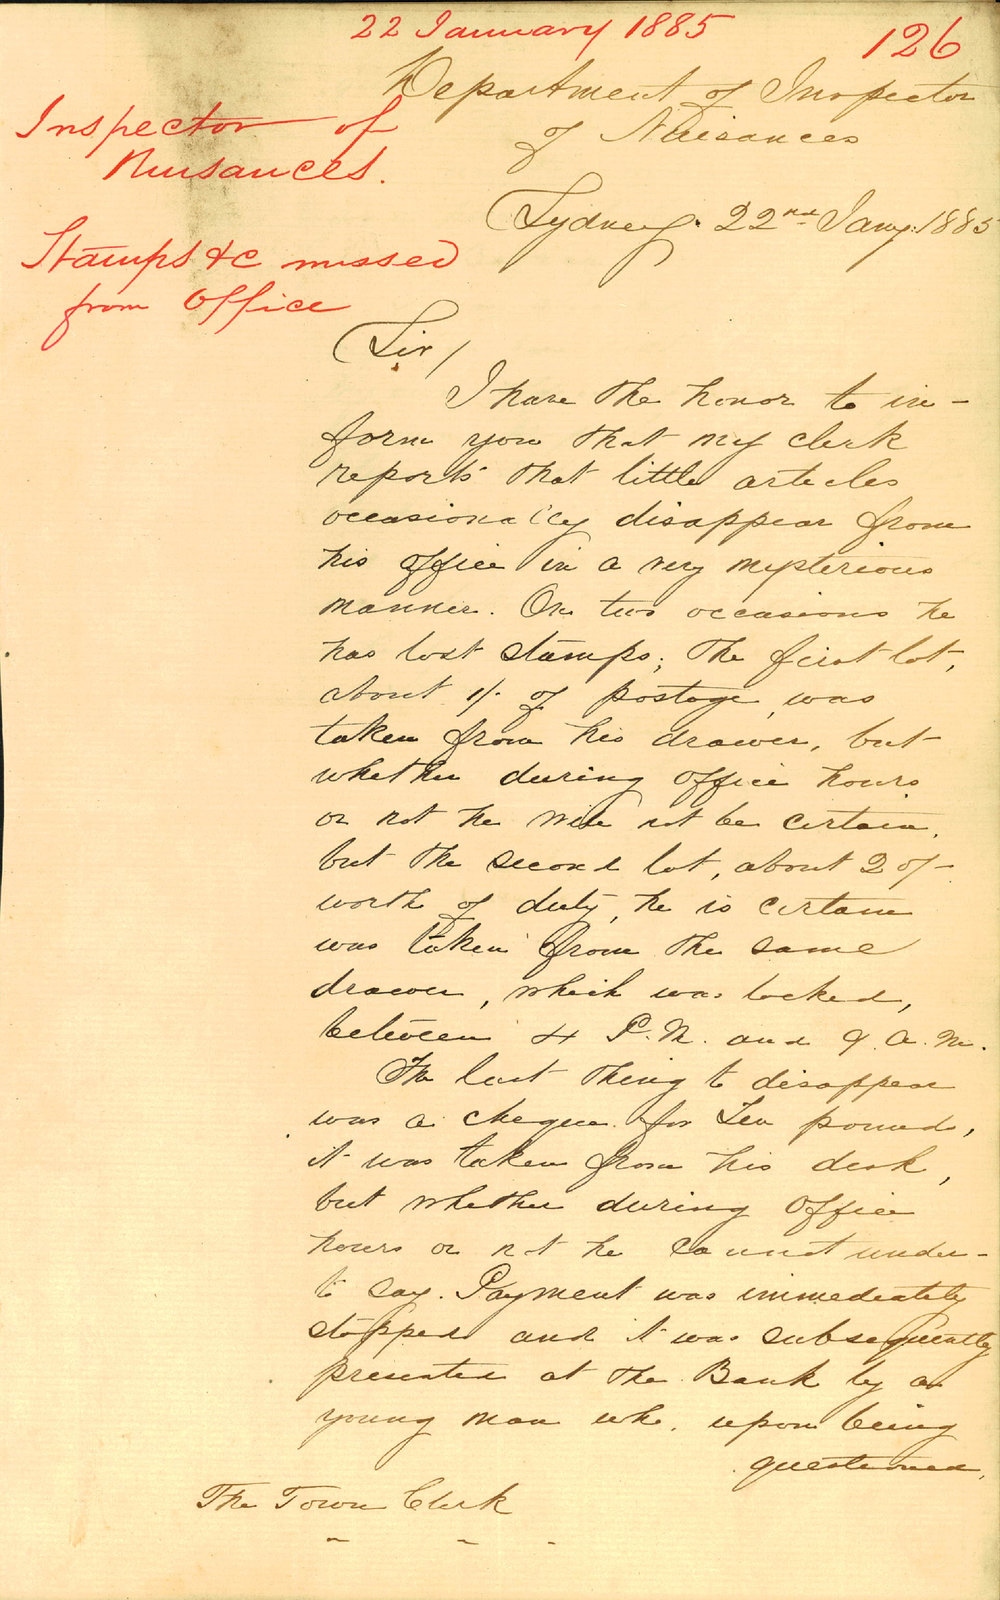 22 January 1885
126
Department of Inspector
of Nuisances
Inspector of
Nuisances.
Sydney. 22nd Jany. 1885
Stamps &c missed
from Office
Sir/
I have the honor to in-
form you that my clerk
reports that little articles
occasionally disappear from
his office in a very mysterious
manner. On two occasions he
has lost stamps; the first lot,
about 1/- of postage, was
taken from his drawer, but
whether during office hours
or not he will not be certain,
but the second lot, about 20/-
worth of duty, he is certain
was taken from the same
drawer, which was locked,
between 4 P.M. and 9 A.M.
The last thing to disappear
was a cheque for Ten pounds,
it was taken from his desk,
but whether during office
hours or not he cannot under-
to say. Payment was immediately
stopped and it was subsequently
presented at the Bank by a
young man who, upon being
questioned,
The Town Clerk